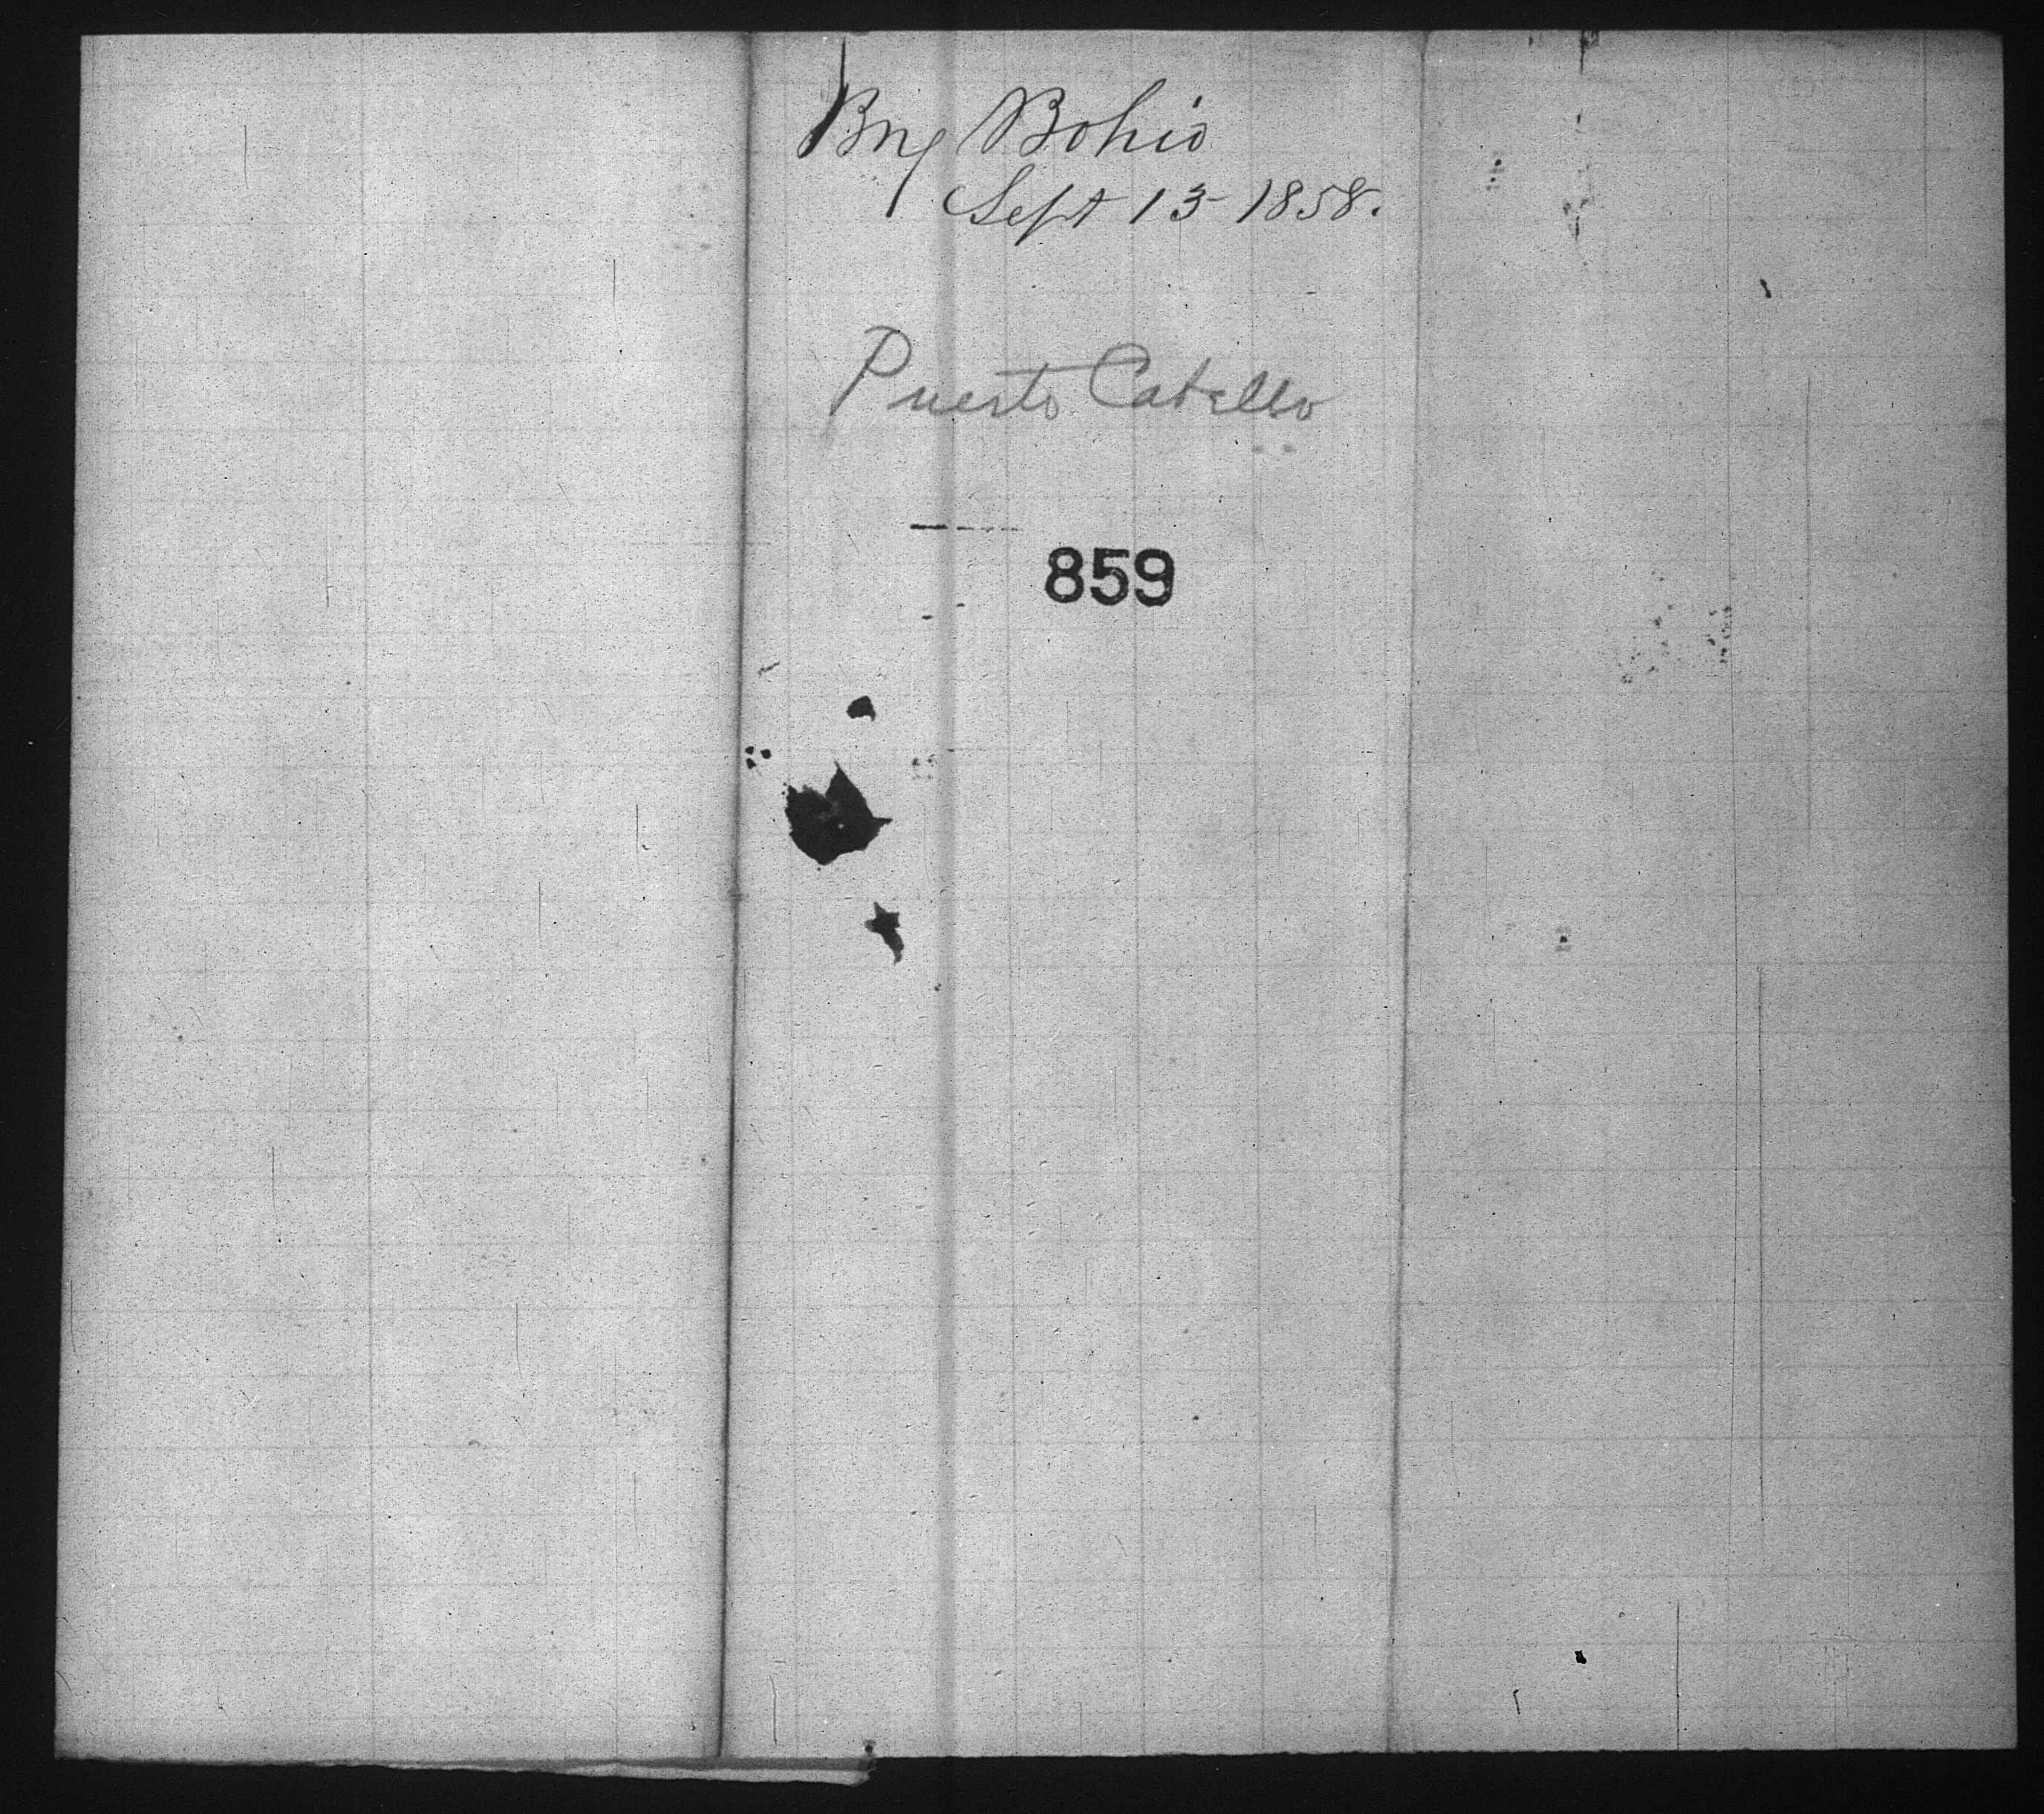 Brig Bohio
Sept 13 - 1858.
Puerto Cabello
859